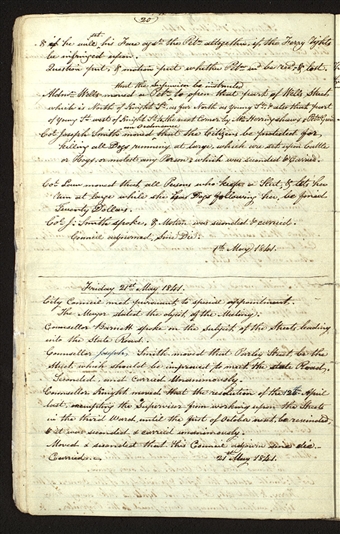 20
& if he will set his Face agst the Petn altogether, if the Ferry Rights
be infringed upon.
Question put, & motion put whether Petn be & lost.
that the Supervisor be instructed
Aldmn Wells moved to open that part of Wells Street
which is North of Knight St. as far North as Young St. & also that part
of Young St. west of Knight St. to the west corner by
an ordinance
Cor Joseph Smith moved that the Citizens be protected for
killing all Dogs running at large, which are set upon Cattle
or Hogs, or molest any Person; which was seconded & Carried.
Cor Law moved that all Persons who keeps a Slut, & lets her
run at large while she has Dogs following her, be fined
Twenty Dollars.
Cor J. Smith spoke, & Motion was seconded & carried.
Council adjourned, Sine Die.
1st May 1841.
Friday 21st May 1841.
City Council met pursuant to special appointment.
The Mayor stated the object of the Meeting.
Councillor Barnett spoke on the Subject of the Streets leading
into the State Road.
Councillor Joseph Smith moved that Parley Street, be the
Street, which should be improved to meet the State Road,
Seconded, and Carried Unanimously.
Councillor Knight moved that the resolution of the 12th April
last, exempting the Supervisor from working upon the Streets
in the third Ward, until the first of October next, be rescinded,
& it was seconded, & carried unanimously.
Moved & seconded that this Council adjourn sine die.
Carried.
21st May 1841.